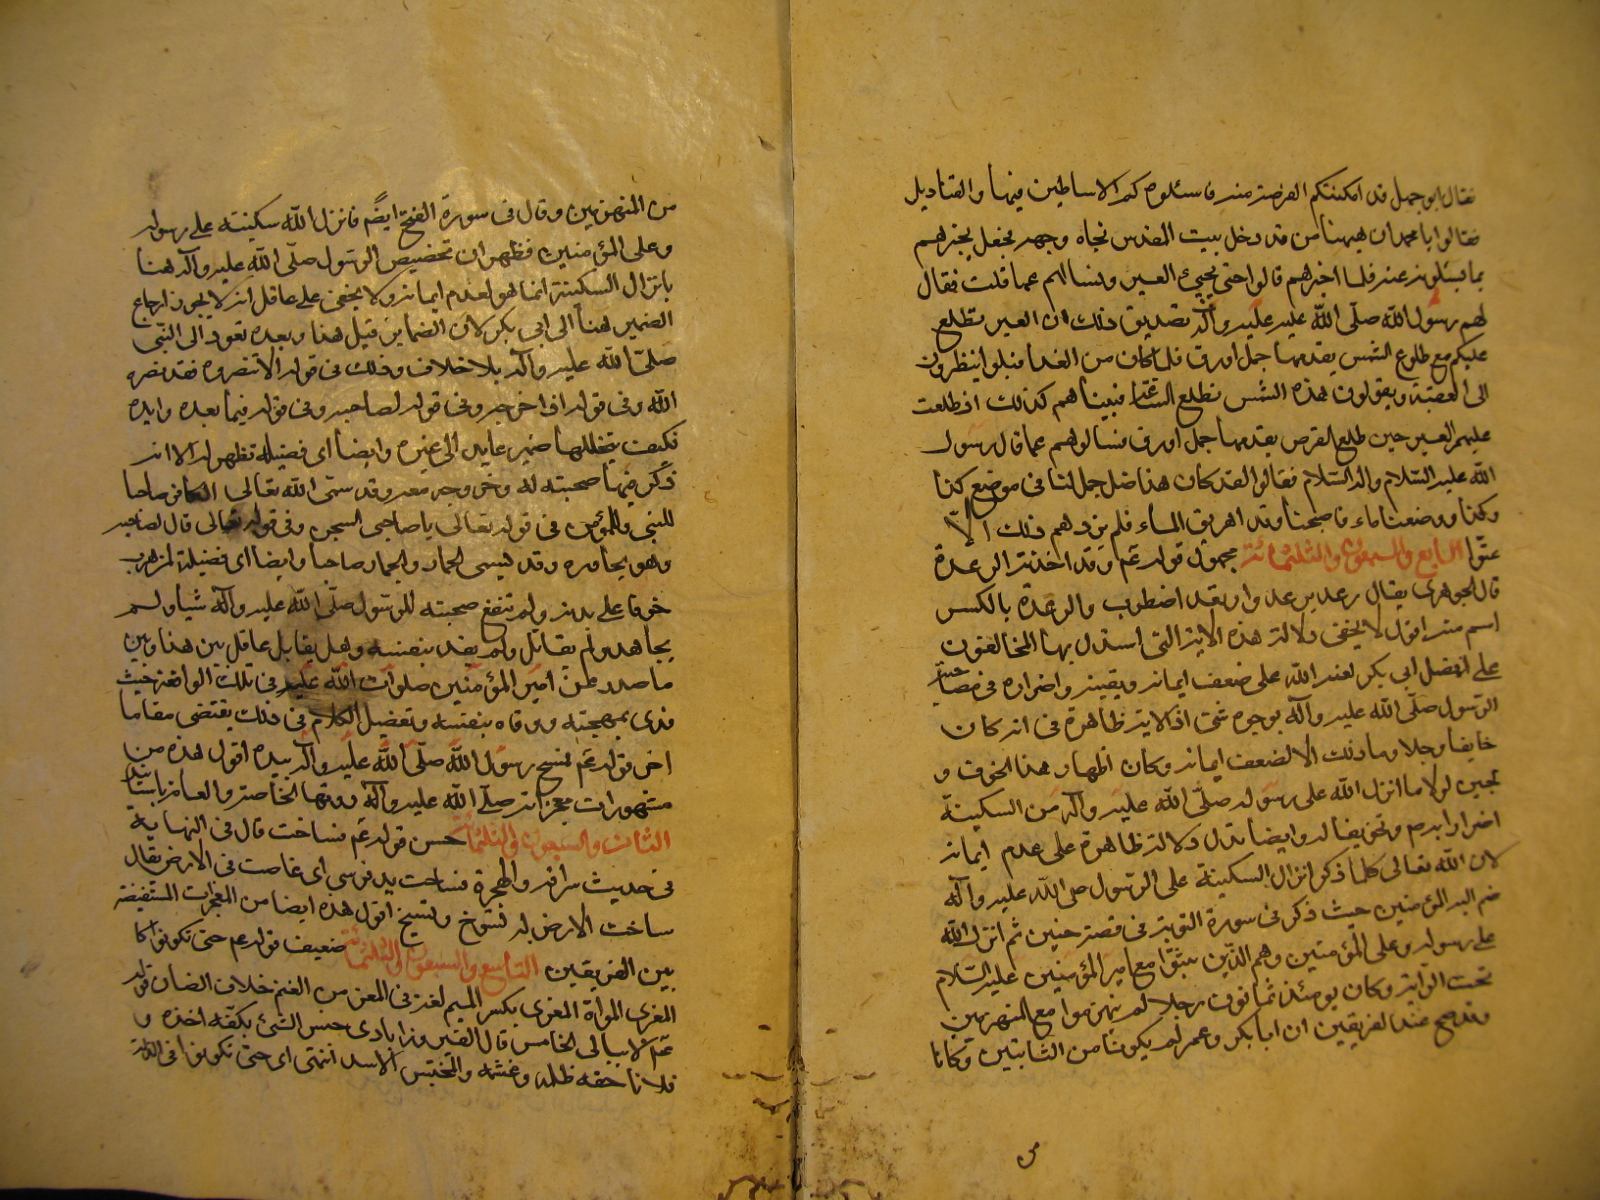 فقال ابو جهل قد امكنتكم الفرصة منه فاسئلوه كم الاساطين فيها والقناديل
فقالوا يا محمد ان ههنا من قد دخل بيت المقدس نجاه وجهه فجعل يخبرهم
بما يسئلونه عنه فلما اخبرهم قالوا حتى يجيئ العير ونسالهم عما قلت فقال
لهم رسول الله صلى الله عليه وآله تصديق ذلك ان العير تطلع
عليكم مع طلوع الشمس يقدمها جمل اورق فلما كان من الغد اقبلوا ينظرون
الى العقبة ويقولون هذه الشمس تطلع الساعة فبينا هم كذلك اذ طلعت
عليهم العير حين طلع القرص يقدمها جمل اورق فسالوهم عما قال رسول
الله عليه السلام واله السلام فقالوا لقد كان هذا ضل جمل لنا في موضع كذا
وكذا ووضعنا ماء فاصبحنا وقد اهريق الماء فلم يزدهم ذلك الا
عتوا السابع والسبعون والثلثمائة مجهول قوله عم وقد اخذته الرعدة
قال الجوهرى يقال رعد يرعد وارتعد اضطرب والرعدة بالكسر
اسم منه اقول لا يخفى دلالة هذه الاية التى استدل بها المخالفون
على فضل ابى بكر لعنه الله على ضعف ايمانه ويقينه واضراره في مصاحبته
الرسول صلى الله عليه وآله بوجوه شتى اذ الاية ظاهرة في انه كان
خايفا وجلا وما ذلك الا لضعف ايمانه وكان اظهار هذا الخوف و
الجبن لولا ما انزل الله على رسوله صلى الله عليه وآله من السكينة
اضرارا بهم وتخويفا له وايضا تدل دلالة ظاهرة على عدم ايمانه
لان الله تعالى كلما ذكر انزال السكينة على الرسول صلى الله عليه وآله
ضم اليه المؤمنين حيث ذكر في سورة التوبة في قصة حنين ثم انزل الله
على رسوله وعلى المؤمنين وهم الذين ثبتوا مع امير المؤمنين عليه السلام
تحت الراية وكان يومئذ ثمانون رجلا لم ينهزموا مع المنهزمين
وقد صح عند الفريقين ان ابا بكر وعمر لم يكونا من الثابتين وكانا
من
من المنهزمين وقال في سورة الفتح ايضا فانزل الله سكينته على رسوله
وعلى المؤمنين فظهر ان تخصيص الرسول صلى الله عليه وآله هنا
بانزال السكينة انما هو لعدم ايمانه ولا يخفى على عاقل انه لا يجوز ارجاع
الضمير هنا الى ابى بكر لان الضماير قبل هذا وبعده تعود الى النبى
صلى الله عليه وآله بلا خلاف وذلك في قوله الا تنصروه فقد نصره
الله وفى قوله اذ اخرجه وفى قوله لصاحبه وفى قوله فيما بعده وايده
فكيف يتخللها ضمير عايد الى غيره وايضا اى فضيلة تظهر له الا انه
ذكر فيها صحبته له وخروجه معه وقد سمى الله تعالى الكافر صاحبا
للنبى والمؤمن في قوله تعالى يا صاحبى السجن وفى قوله تعالى قال لصاحبه
وهو يحاوره وقد يسمى الحمار والجماد صاحبا وايضا اى فضيلة لمن هرب
خوفا على بدنه ولم تنفع صحبته للرسول صلى الله عليه وآله شيأ ولم
يجاهد ولم يقاتل ولم يفد بنفسه وهل يقابل عاقل بين هذا وبين
ما صدر عن امير المؤمنين صلوات الله عليه في تلك الواقعة حيث
فدى بمهجته ووقاه بنفسه وتفصيل الكلام في ذلك يقتضى مقاما
اخر قوله عم فمسح رسول الله صلى الله عليه وآله بيده اقول هذه من
مشهورات معجزاته صلى الله عليه وآله روتها الخاصة والعامة باسانيد
الثامن والسبعون والثلثمائة حسن قوله عم فساخت قال في النهاية
في حديث سراقة والهجرة فساخت يد فرسى اى غاصت في الارض يقال
ساخت الارض به تسوخ وتسيخ اقول هذه ايضا من المعجزات المستفيضة
بين الفريقين التاسع والسبعون والثلثمائة ضعيف قوله عم حتى تكونوا كا
المعزى المواة المعزى بكسر الميم لغة في المعز من الغنم خلاف الضان قوله
عم لا يبالى الخابس قال الفيروزابادى خبس الشئ بكفه اخذه و
فلانا حقه ظلمه وغشمه والمختبس الاسد انتهى اى حتى تكونوا في الذلة